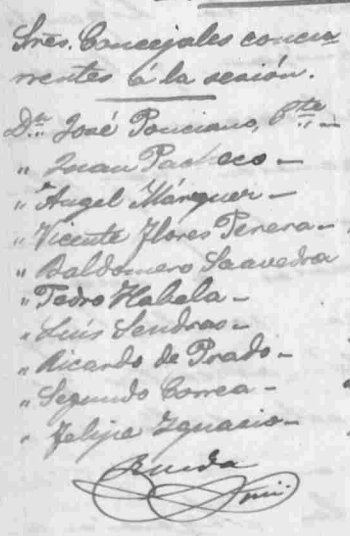 Sres. Concejales concu-
rrentes á la sesión.
Dn. José Ponciano, Pte. —
" Juan Pacheco —
" Angel Márquez —
" Vicente Flores Perera —
" Baldomero Saavedra
" Pedro Habela —
" Luís Sendras —
" Ricardo de Prado —
" Segundo Correa —
" Felipe Ignacio —
Rueda